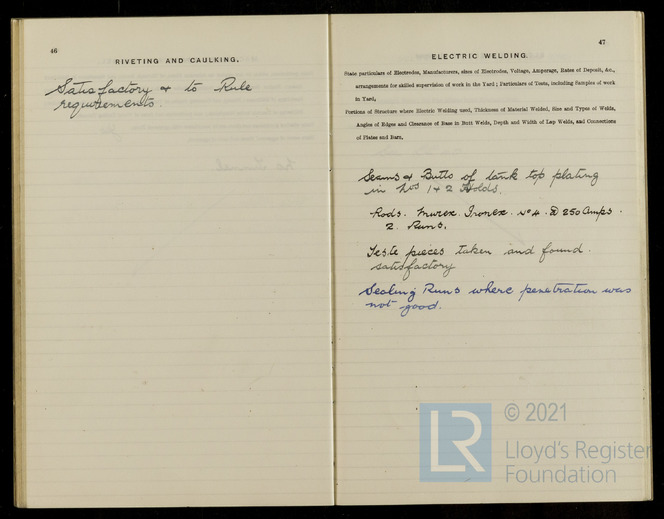 46
RIVETING AND CAULKING.
Satisfactory & to Rule
requirements.
47
ELECTRIC WELDING.
State particulars of Electrodes, Manufacturers, sizes of Electrodes, Voltage, Amperage, Rates of Deposit, &c.,
arrangements for skilled supervision of work in the Yard; Particulars of Tests, including Samples of work
in Yard,
Portions of Structure where Electric Welding used, Thickness of Material Welded, Size and Types of Welds,
Angles of Edges and Clearance of Base in Butt Welds, Depth and Width of Lap Welds, and Connections
of Plates and Bars.
Seams & Butts of tank top plating
in Nos 1 & 2 Holds.
Rods. Murex. Ironex. No 4. @ 250 Amps.
2. Runs.
Teste pieces taken and found.
satisfactory
Sealing Runs where penetration was
not good.
LR
© 2021
Lloyd's Register
Foundation